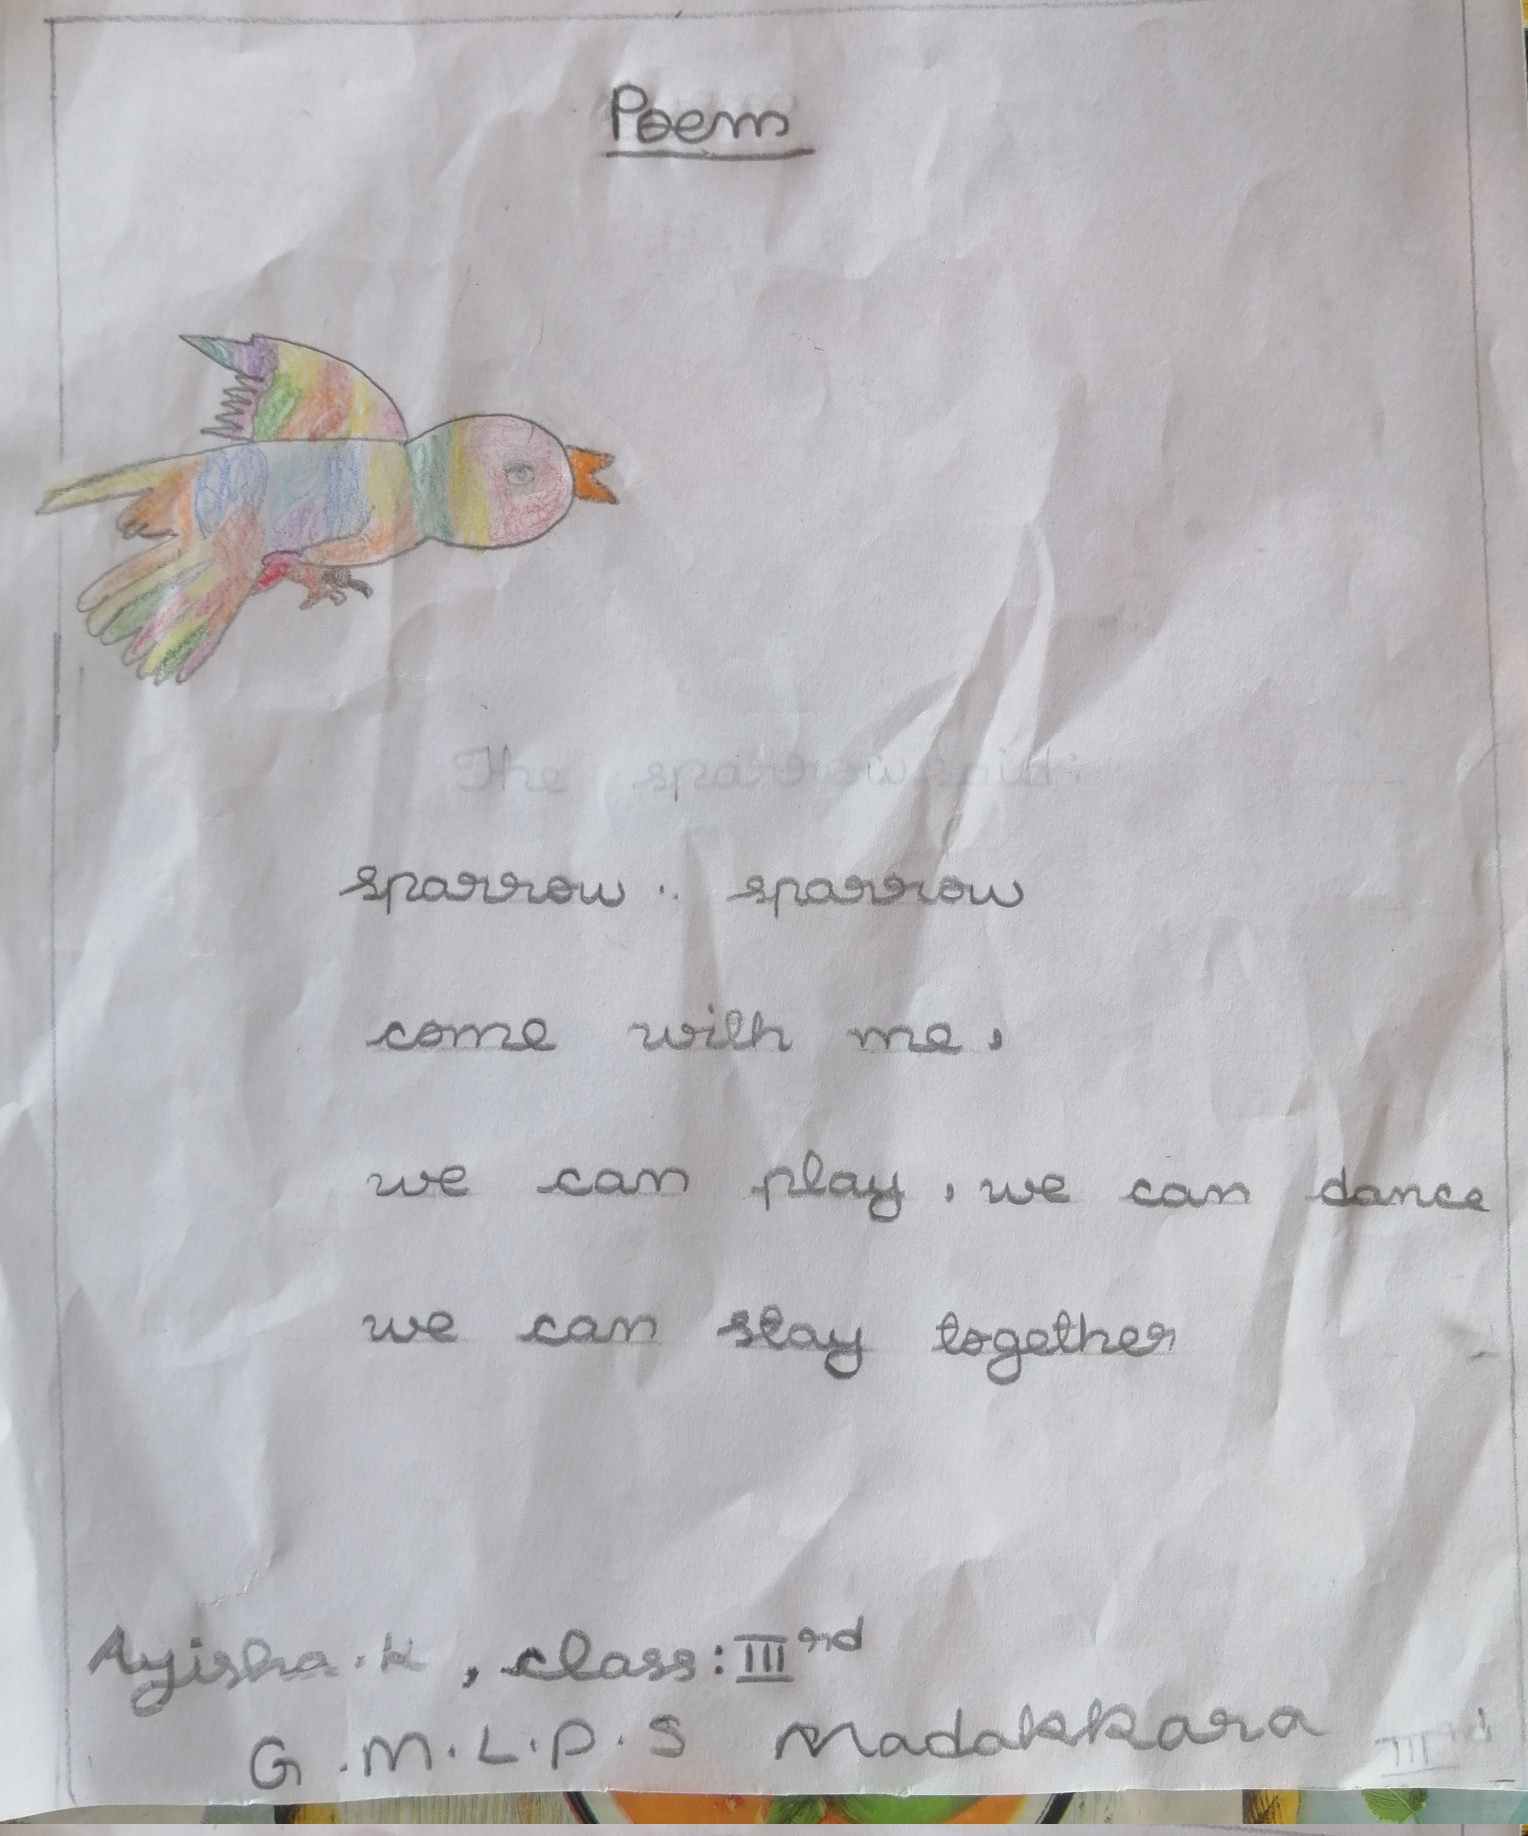 Poem
The sparrow said:
sparrow .. sparrow
come with me,
we can play, we can dance
we can stay together
Ayisha.K, class: III rd
G.M.L.P.S Madakkara
III rd